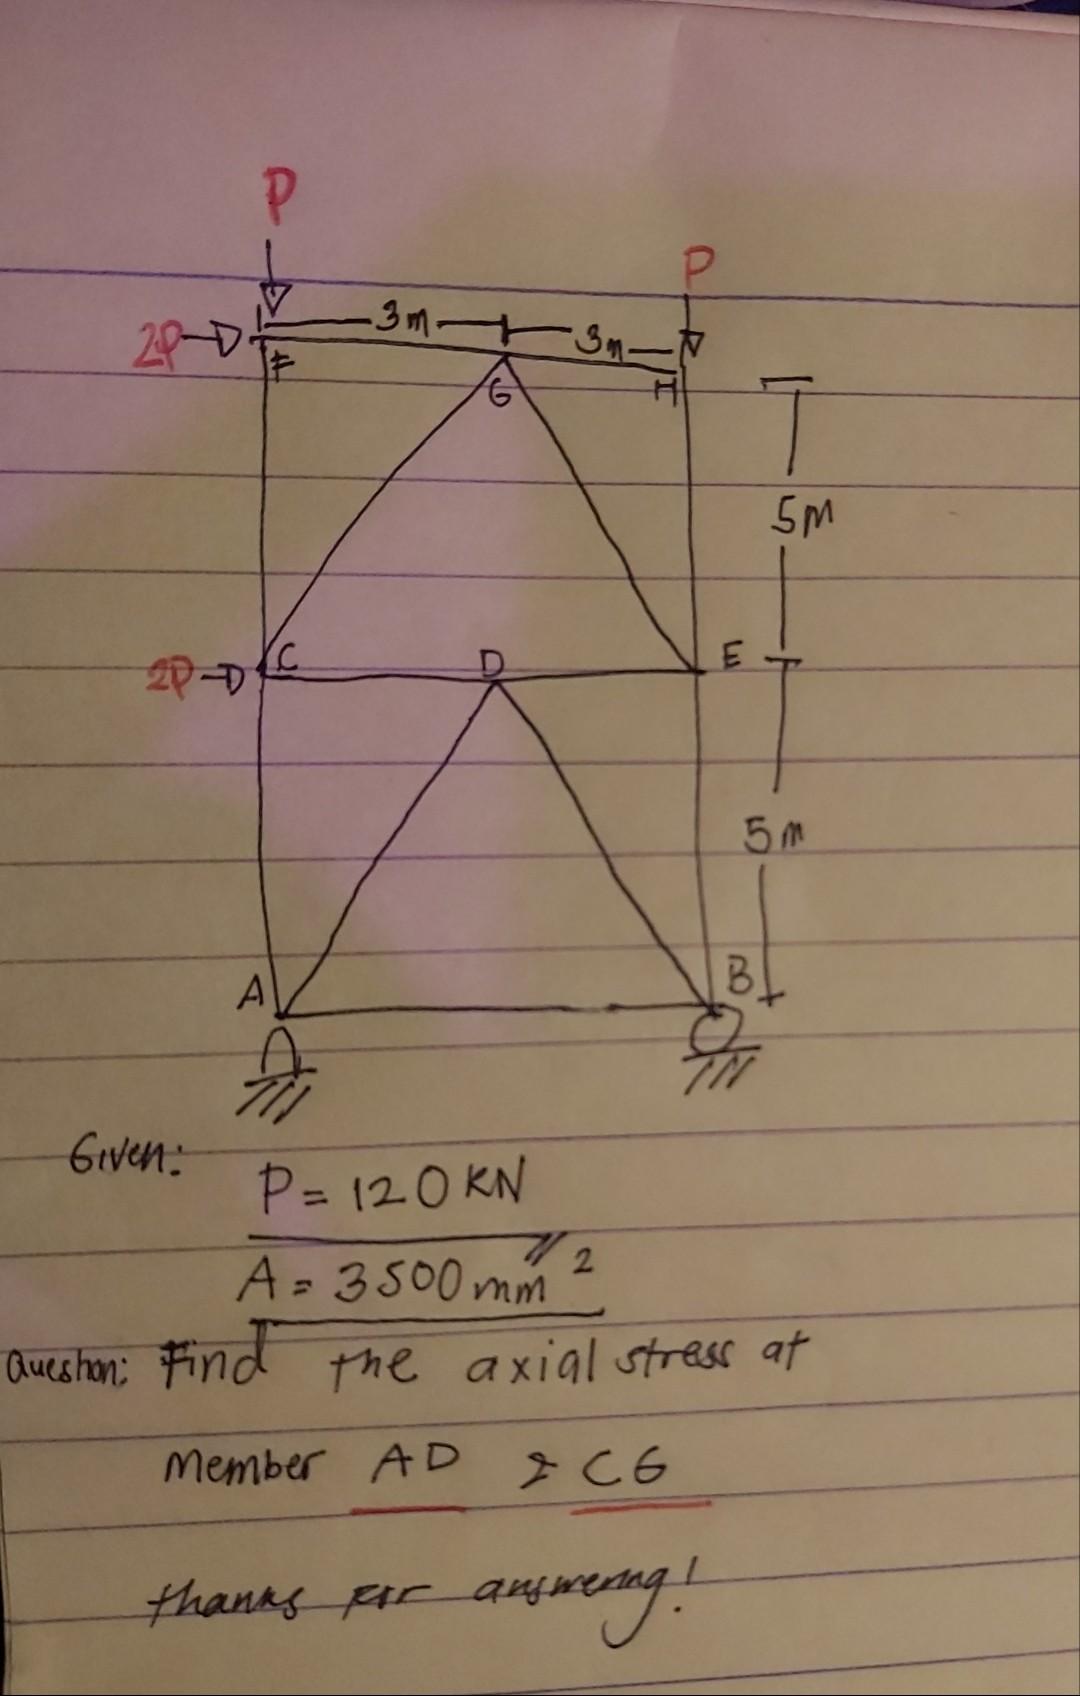 P
P
3m
3m
2P
F
G
H
5m
2P
C
D
E
5m
A
B
Given:
P = 120 KN
A = 3500 mm²
Question: Find the axial stress at
Member AD & CG
thanks for answering!